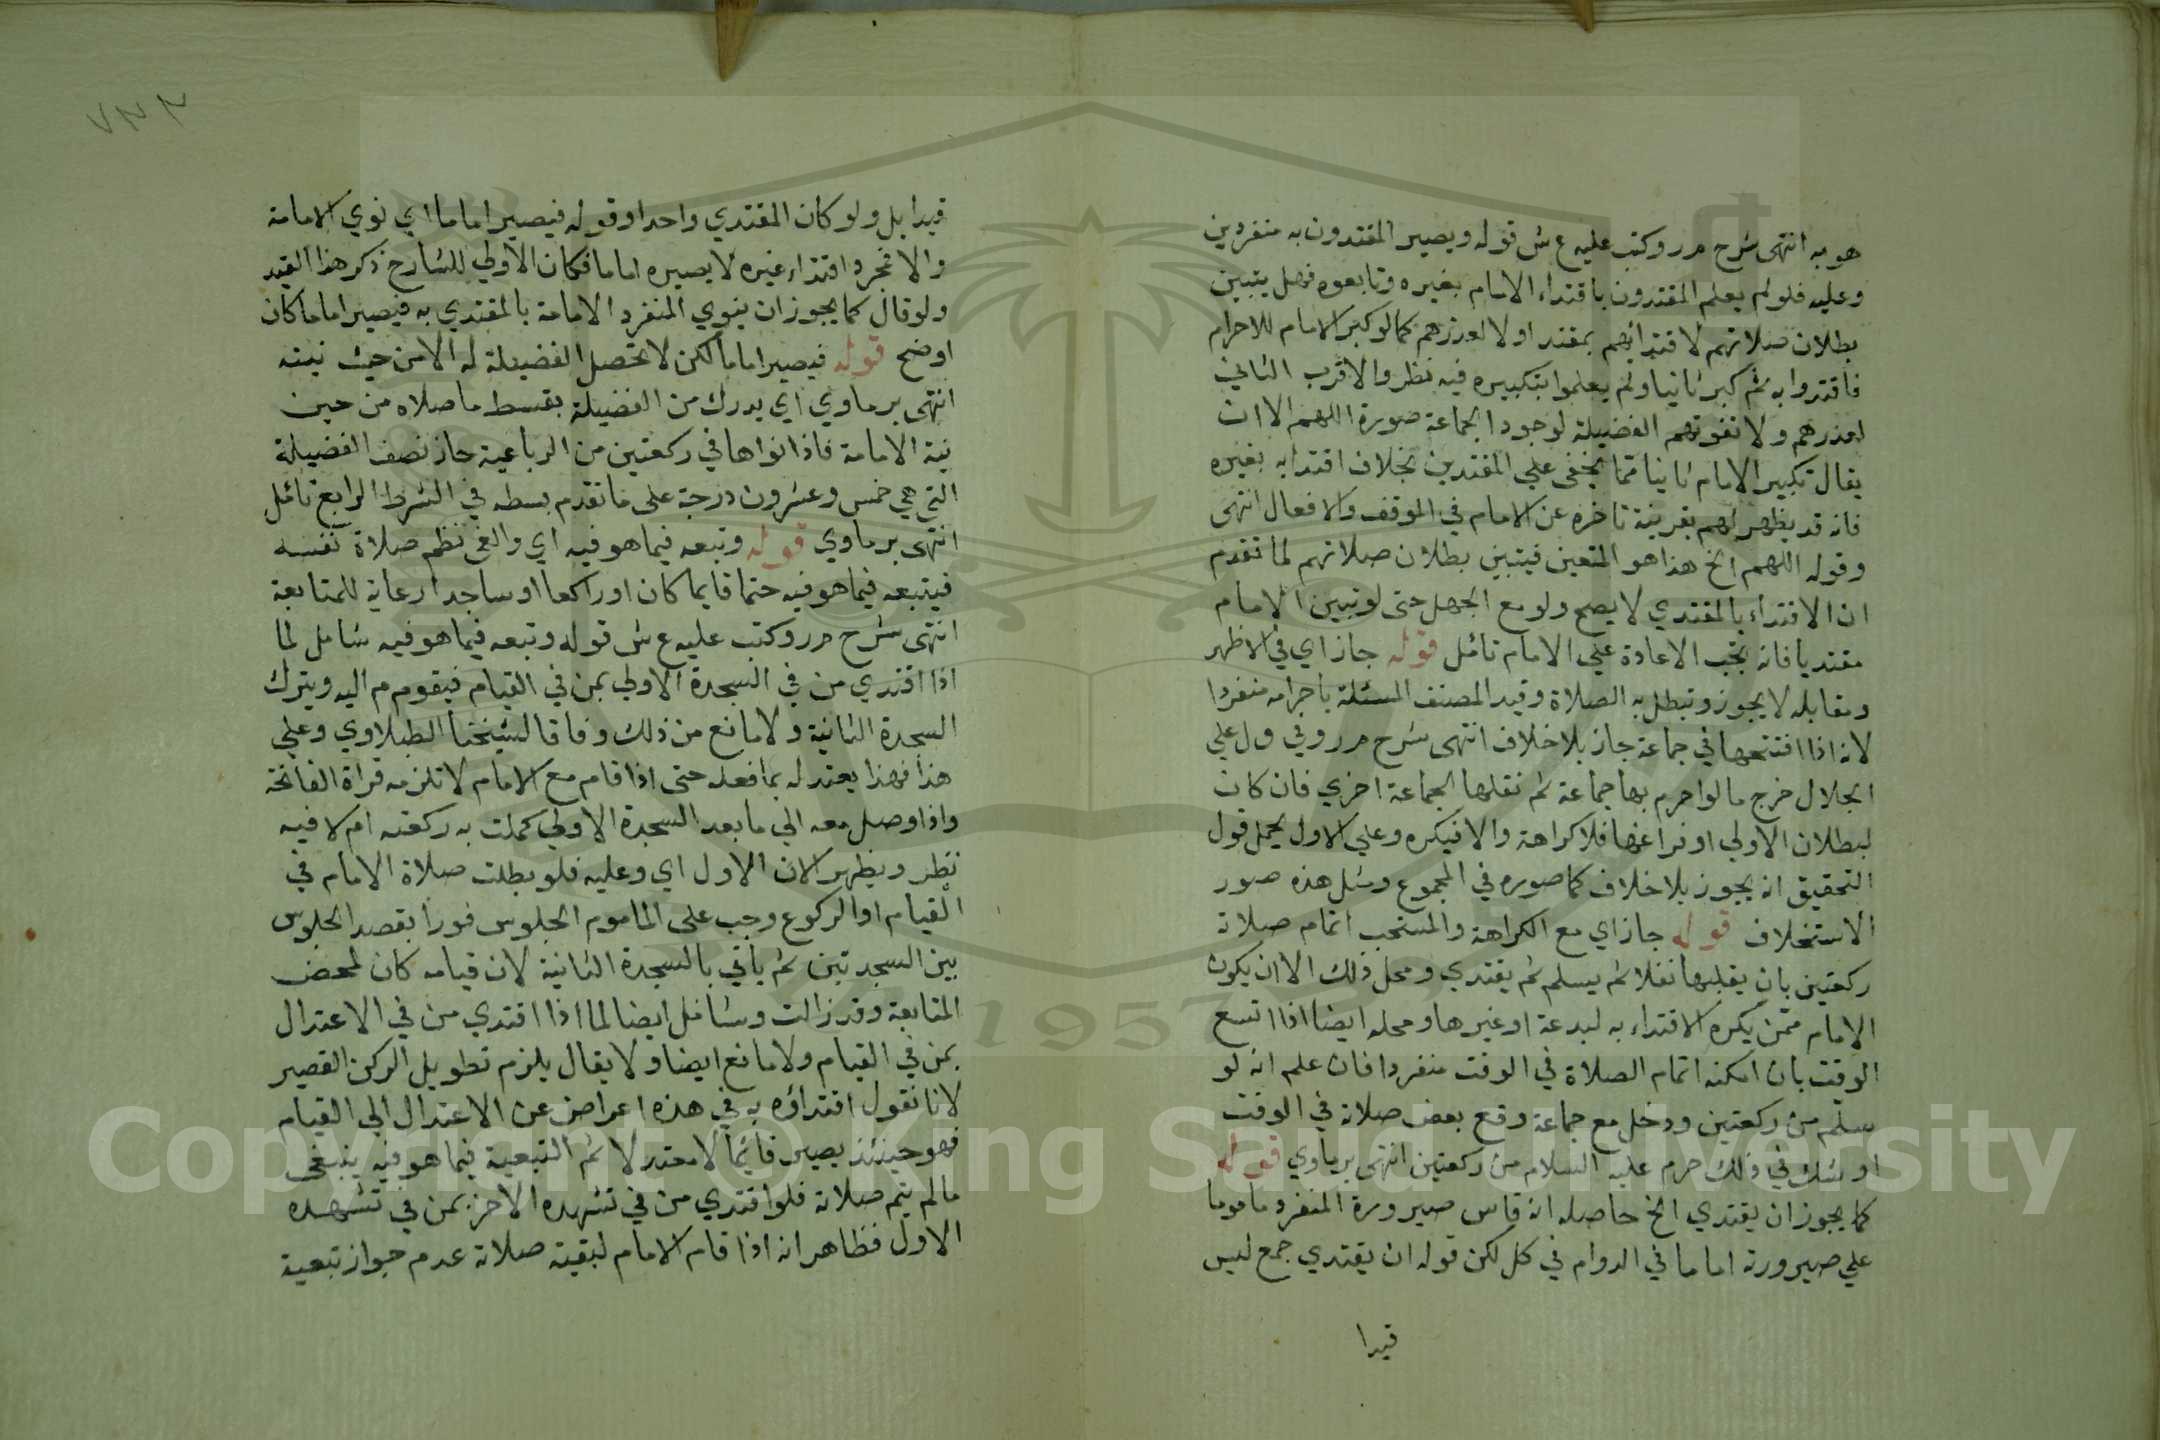 هو به انتهى شرح م ر وكتب عليه ع ش قوله ويصير المقتدون به منفردين
وعليه فلو لم يعلم المقتدون باقتداء الامام بغيره وتابعوه فهل يتبين
بطلان صلاتهم لاقتدائهم بمقتد اولا لعذرهم كما لو كبر الامام للاحرام
فاقتدوا به ثم كبر ثانيا ولم يعلموا بتكبيره فيه نظر والاقرب الثاني
لعذرهم ولا تفوتهم الفضيلة لوجود الجماعة صورة اللهم الا ان
يقال تكبير الامام ثانيا مما يخفى علي المقتدين بخلاف اقتدايه بغيره
فانه قد يظهر لهم بقرينة تاخره عن الامام في الموقف والافعال انتهى
وقوله اللهم الخ هذا هو المتعين فيتبين بطلان صلاتهم لما تقدم
ان الاقتداء بالمقتدي لا يصح ولو مع الجهل حتى لو تبين الامام
مقتديا فانه يجب الاعادة علي الامام تامل قوله جاز اي في الاظهر
ومقابله لا يجوز وتبطل به الصلاة وقيد المصنف المسئلة باحرامه منفردا
لانه اذا افتتحها في جماعة جاز بلا خلاف انتهى شرح م ر وفي ق ل علي
الجلال خرج ما لو احرم بها جماعة ثم نقلها لجماعة اخري فان كان
لبطلان الاولي او فراغها فلا كراهة والا فيكره وعلي الاول يحمل قول
التحقيق انه يجوز بلا خلاف كما صوره في المجموع ومثل هذه صور
الاستخلاف قوله جاز اي مع الكراهة والمستحب اتمام صلاته
ركعتين بان يقلبها نفلا ثم يسلم ثم يقتدي ومحل ذلك الا ان يكون
الامام ممن يكره الاقتداء به لبدعة او غيرها ومحله ايضا اذا اتسع
الوقت بان امكنه اتمام الصلاة في الوقت منفردا فان علم انه لو
سلم من ركعتين ودخل مع جماعة وقع بعض صلاته في الوقت
او شك في ذلك حرم عليه السلام من ركعتين انتهى برماوي قوله
كما يجوز ان يقتدي الخ حاصله انه قاس صيرورة المنفرد ماموما
علي صيرورته اماما في الدوام في كل لكن قوله ان يقتدي جمع ليس
قيدا
قيدا بل ولو كان المقتدي واحدا وقوله فيصير اماما اي نوي الامامة
والا فمجرد اقتداء غيره لا يصيره اماما فكان الاولي للشارح ذكر هذا القيد
ولو قال كما يجوز ان ينوي المنفرد الامامة بالمقتدي به فيصير اماما كان
اوضح قوله فيصير اماما لكن لا تحصل الفضيلة له الا من حيث نيته
انتهى برماوي اي يدرك من الفضيلة بقسط ما صلاه من حين
نية الامامة فاذا نواها في ركعتين من الرباعية حاز نصف الفضيلة
التي هي خمس وعشرون درجة على ما تقدم بسطه في الشرط الرابع تامل
انتهى برماوي قوله وتبعه فيما هو فيه اي والغى نظم صلاة نفسه
فيتبعه فيما هو فيه حتما قايما كان او راكعا او ساجدا رعاية للمتابعة
انتهى شرح م ر وكتب عليه ع ش قوله وتبعه فيما هو فيه شامل لما
اذا اقتدي من في السجدة الاولي بمن في القيام فيقوم م اليه ويترك
السجدة الثانية ولا مانع من ذلك وفاقا لشيخنا الطبلاوي وعلي
هذا فهذا يعتد له بما فعله حتى اذا قام مع الامام لا تلزمه قراة الفاتحة
واذا وصل معه الي ما بعد السجدة الاولي كملت به ركعته ام لا فيه
نظر ويظهر الان الاول اي وعليه فلو بطلت صلاة الامام في
القيام او الركوع وجب على الماموم الجلوس فورا بقصد الجلوس
بين السجدتين ثم ياتي بالسجدة الثانية لان قيامه كان لمحض
المتابعة وقد زالت وشامل ايضا لما اذا اقتدي من في الاعتدال
بمن في القيام ولا مانع ايضا ولا يقال يلزم تطويل الركن القصير
لانا نقول اقتداؤه به في هذه اعراض عن الاعتدال الي القيام
فهو حينئذ يصير قائما لا معتدلا ثم التبعية فيما هو فيه ينبغى
ما لم يتم صلاته فلو اقتدي من في تشهده الاخر بمن في تشهده
الاول فظاهر انه اذا قام الامام لبقية صلاته عدم جواز تبعية
1957
Copyright © King Saud University